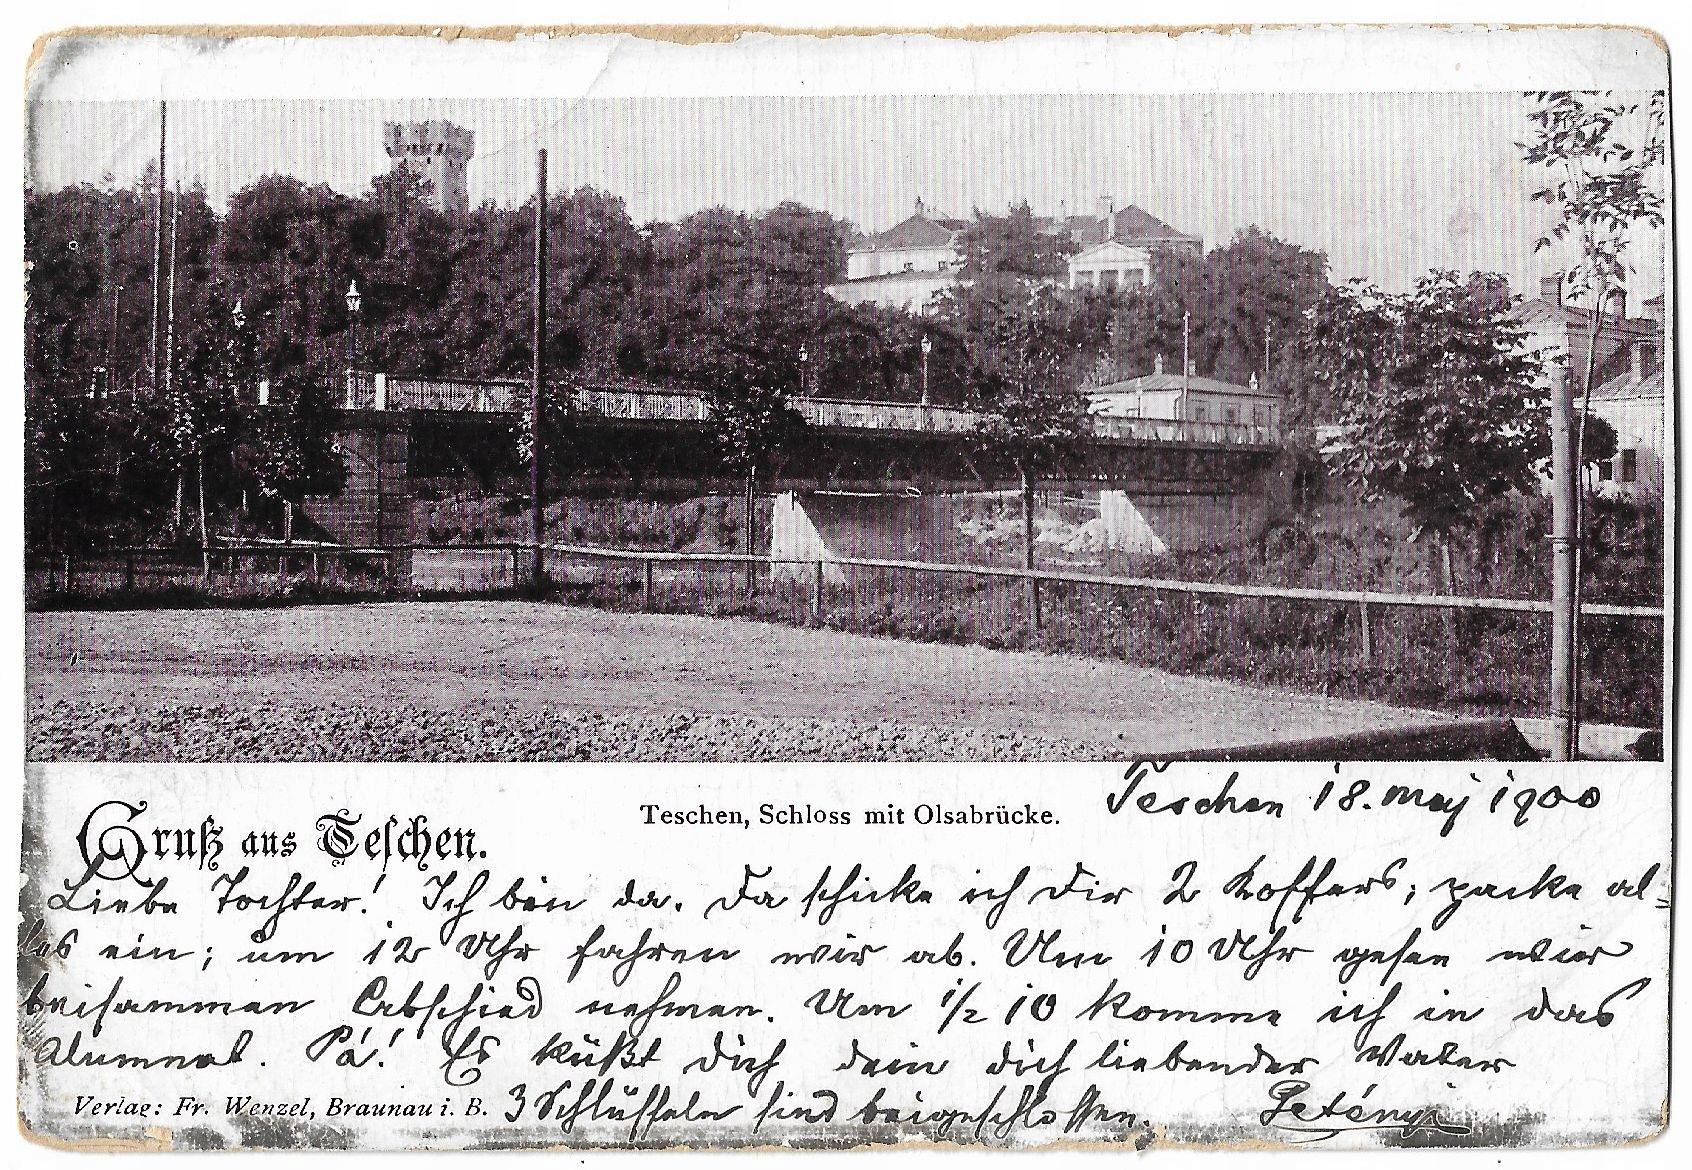 Teschen 18. maj 1900
Teschen, Schloss mit Olsabrücke.
Gruß aus Teschen.
Liebe Tochter! Ich bin da. Da schicke ich Dir 2 Koffers; packe al-
les ein; um 12 Uhr fahren wir ab. Um 10 Uhr gehen wir
beisammen Abschied nehmen. Um 1/2 10 komme ich in das
Alumnat. Pá! Es küßt Dich dein dich liebender Vater
Verlag: Fr. Wenzel, Braunau i. B. 3 Schlüsseln sind beigeschlossen. Petényi